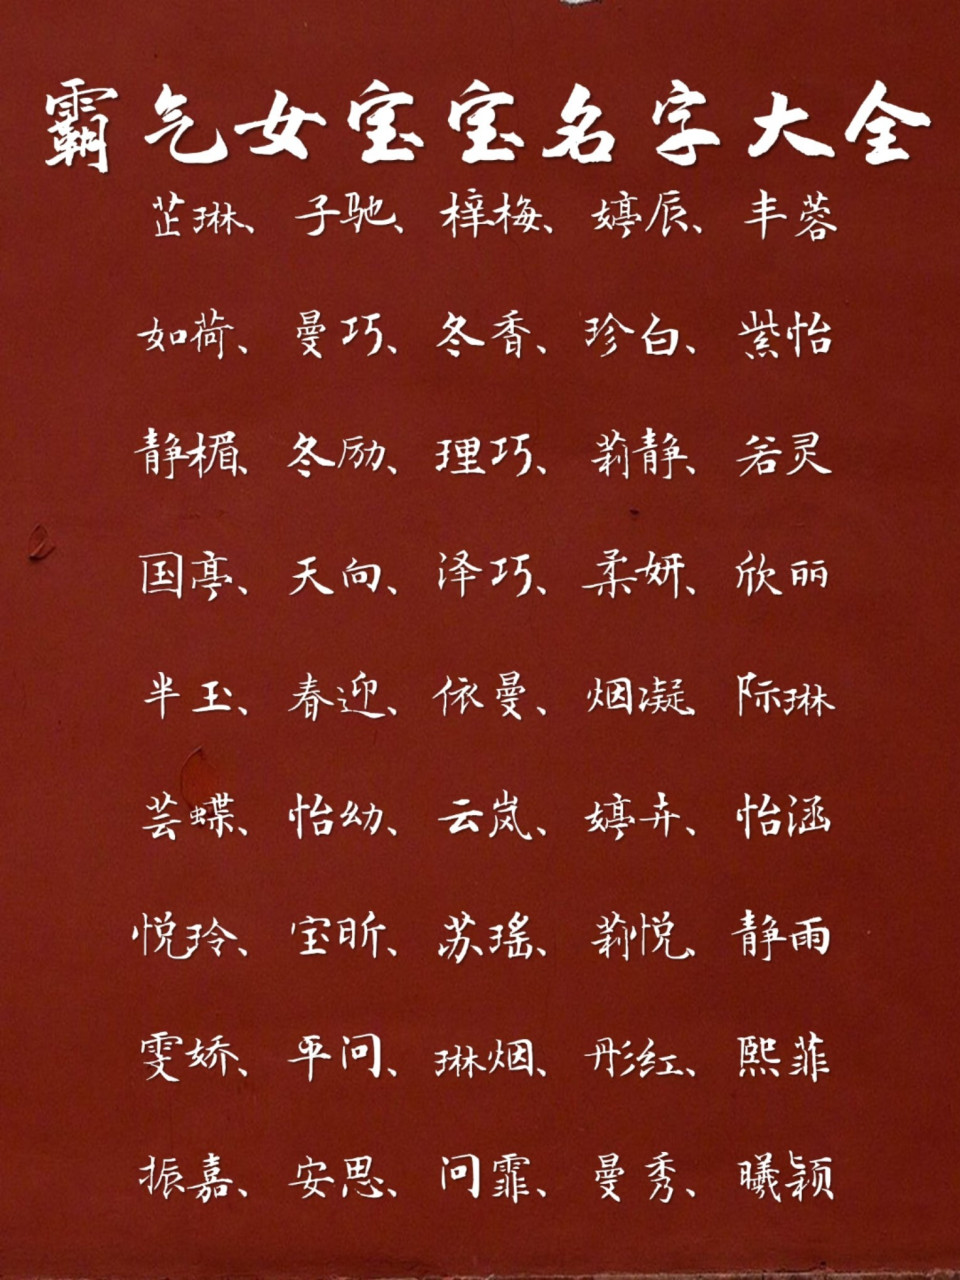 霸气女宝宝名字大全
芷琳、子驰、梓梅、婷辰、丰蓉
如荷、曼巧、冬香、珍白、紫怡
静楣、冬励、理巧、莉静、若灵
国亭、天向、泽巧、柔妍、欣丽
半玉、春迎、依曼、烟凝、际琳
芸蝶、怡幼、云岚、婷卉、怡涵
悦玲、宝昕、苏瑶、莉悦、静雨
雯娇、平问、琳烟、彤红、熙菲
振嘉、安思、问霏、曼秀、曦颖